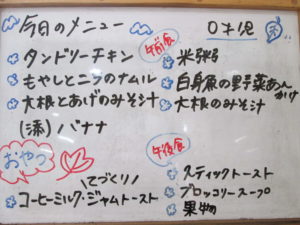 今日のメニュー
タンドリーチキン
もやしとニラのナムル
大根とあげのみそ汁
(添) バナナ
おやつ
てづくり!
コーヒーミルク・ジャムトースト
0才児
午前食
米粥
白身魚の野菜あんかけ
大根のみそ汁
午後食
スティックトースト
ブロッコリースープ
果物